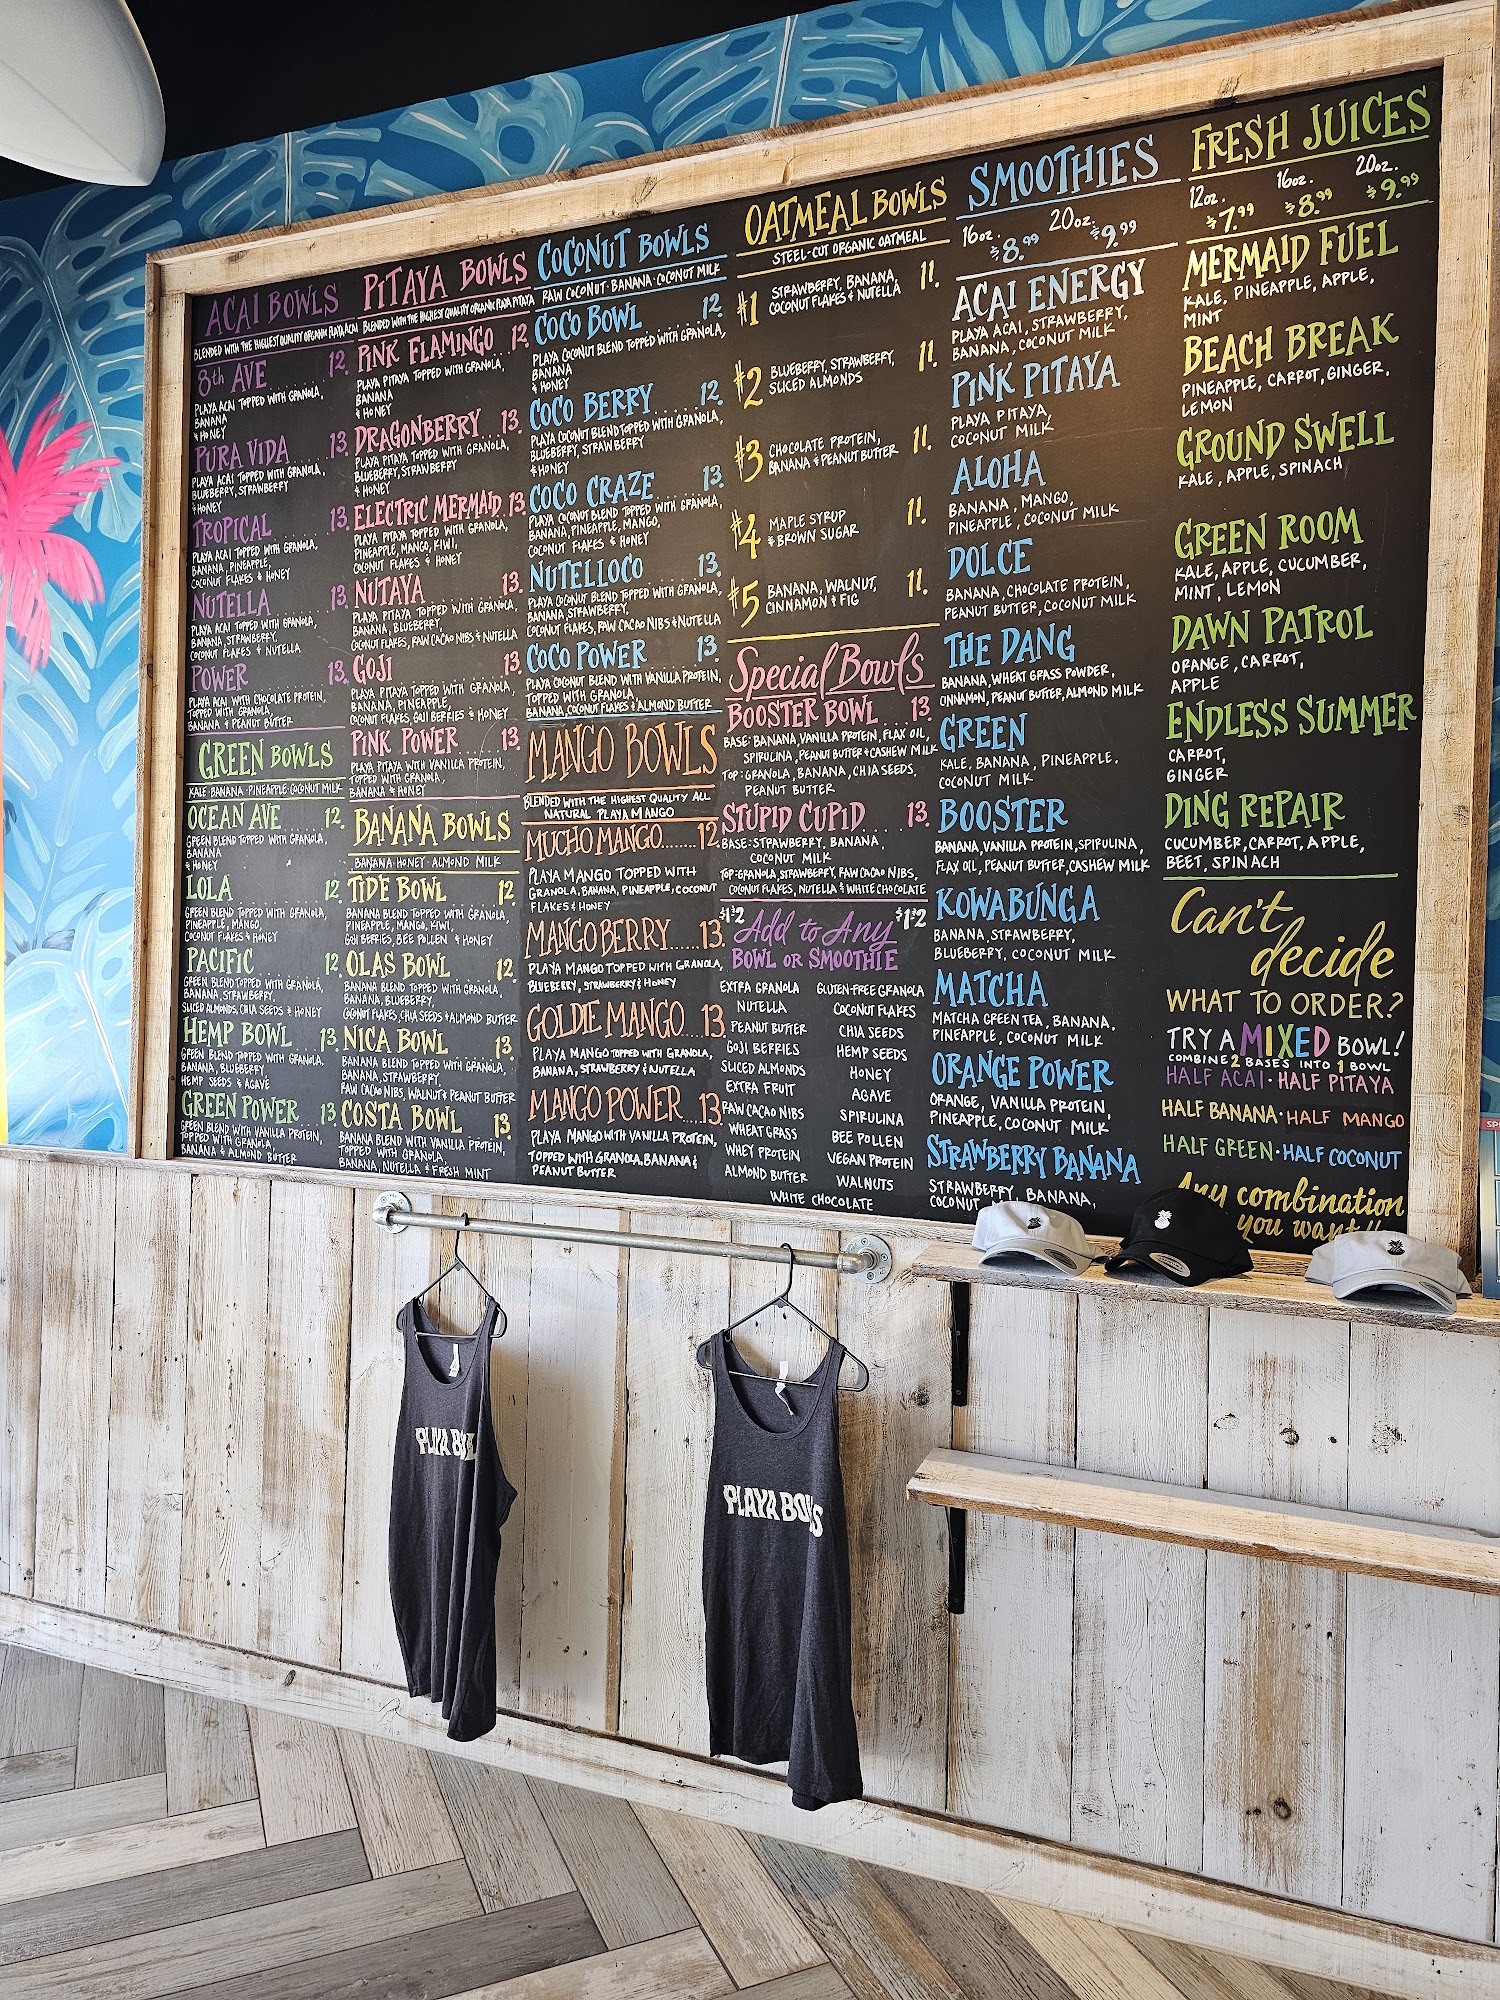 ACAI BOWLS
BLENDED WITH THE HIGHEST QUALITY ORGANIC PLAYA ACAI
8th AVE 12.
PLAYA ACAI TOPPED WITH GRANOLA,
BANANA
& HONEY
PURA VIDA 13.
PLAYA ACAI TOPPED WITH GRANOLA,
BLUEBERRY, STRAWBERRY
& HONEY
TROPICAL 13.
PLAYA ACAI TOPPED WITH GRANOLA,
BANANA, PINEAPPLE,
COCONUT FLAKES & HONEY
NUTELLA 13.
PLAYA ACAI TOPPED WITH GRANOLA,
BANANA, STRAWBERRY,
COCONUT FLAKES & NUTELLA
POWER 13.
PLAYA ACAI WITH CHOCOLATE PROTEIN,
TOPPED WITH GRANOLA,
BANANA & PEANUT BUTTER
GREEN BOWLS
KALE·BANANA·PINEAPPLE·COCONUT MILK
OCEAN AVE 12.
GREEN BLEND TOPPED WITH GRANOLA,
BANANA
& HONEY
LOLA 12.
GREEN BLEND TOPPED WITH GRANOLA,
PINEAPPLE, MANGO,
COCONUT FLAKES & HONEY
PACIFIC 12.
GREEN BLEND TOPPED WITH GRANOLA,
BANANA, STRAWBERRY,
SLICED ALMONDS, CHIA SEEDS & HONEY
HEMP BOWL 13.
GREEN BLEND TOPPED WITH GRANOLA,
BANANA, BLUEBERRY,
HEMP SEEDS & AGAVE
GREEN POWER 13.
GREEN BLEND WITH VANILLA PROTEIN,
TOPPED WITH GRANOLA,
BANANA & ALMOND BUTTER
PITAYA BOWLS
BLENDED WITH THE HIGHEST QUALITY ORGANIC PLAYA PITAYA
PINK FLAMINGO 12.
PLAYA PITAYA TOPPED WITH GRANOLA,
BANANA
& HONEY
DRAGONBERRY 13.
PLAYA PITAYA TOPPED WITH GRANOLA,
BLUEBERRY, STRAWBERRY
& HONEY
ELECTRIC MERMAID 13.
PLAYA PITAYA TOPPED WITH GRANOLA,
PINEAPPLE, MANGO, KIWI,
COCONUT FLAKES & HONEY
NUTAYA 13.
PLAYA PITAYA TOPPED WITH GRANOLA,
BANANA, BLUEBERRY,
COCONUT FLAKES, RAW CACAO NIBS & NUTELLA
GOJI 13.
PLAYA PITAYA TOPPED WITH GRANOLA,
BANANA, PINEAPPLE,
COCONUT FLAKES, GOJI BERRIES & HONEY
PINK POWER 13.
PLAYA PITAYA WITH VANILLA PROTEIN,
TOPPED WITH GRANOLA,
BANANA & HONEY
BANANA BOWLS
BANANA·HONEY·ALMOND MILK
TIDE BOWL 12.
BANANA BLEND TOPPED WITH GRANOLA,
PINEAPPLE, MANGO, KIWI,
GOJI BERRIES, BEE POLLEN & HONEY
OLAS BOWL 12.
BANANA BLEND TOPPED WITH GRANOLA,
BANANA, BLUEBERRY,
COCONUT FLAKES, CHIA SEEDS & ALMOND BUTTER
NICA BOWL 13.
BANANA BLEND TOPPED WITH GRANOLA,
BANANA, STRAWBERRY,
RAW CACAO NIBS, WALNUT & PEANUT BUTTER
COSTA BOWL 13.
BANANA BLEND WITH VANILLA PROTEIN,
TOPPED WITH GRANOLA,
BANANA, NUTELLA & FRESH MINT
COCONUT BOWLS
RAW COCONUT·BANANA·COCONUT MILK
COCO BOWL 12.
PLAYA COCONUT BLEND TOPPED WITH GRANOLA,
BANANA
& HONEY
COCO BERRY 12.
PLAYA COCONUT BLEND TOPPED WITH GRANOLA,
BLUEBERRY, STRAWBERRY
& HONEY
COCO CRAZE 13.
PLAYA COCONUT BLEND TOPPED WITH GRANOLA,
BANANA, PINEAPPLE, MANGO,
COCONUT FLAKES & HONEY
NUTELLOCO 13.
PLAYA COCONUT BLEND TOPPED WITH GRANOLA,
BANANA, STRAWBERRY,
COCONUT FLAKES, RAW CACAO NIBS & NUTELLA
COCO POWER 13.
PLAYA COCONUT BLEND WITH VANILLA PROTEIN,
TOPPED WITH GRANOLA,
BANANA, COCONUT FLAKES & ALMOND BUTTER
MANGO BOWLS
BLENDED WITH THE HIGHEST QUALITY ALL
NATURAL PLAYA MANGO
MUCHO MANGO........12
PLAYA MANGO TOPPED WITH
GRANOLA, BANANA, PINEAPPLE, COCONUT
FLAKES & HONEY
MANGO BERRY......13
PLAYA MANGO TOPPED WITH GRANOLA,
BLUEBERRY, STRAWBERRY & HONEY
GOLDIE MANGO...13
PLAYA MANGO TOPPED WITH GRANOLA,
BANANA, STRAWBERRY & NUTELLA
MANGO POWER....13
PLAYA MANGO WITH VANILLA PROTEIN,
TOPPED WITH GRANOLA, BANANA &
PEANUT BUTTER
OATMEAL BOWLS
STEEL-CUT ORGANIC OATMEAL
#1 STRAWBERRY, BANANA, 11.
COCONUT FLAKES & NUTELLA
#2 BLUEBERRY, STRAWBERRY, 11.
SLICED ALMONDS
#3 CHOCOLATE PROTEIN, 11.
BANANA & PEANUT BUTTER
#4 MAPLE SYRUP 11.
& BROWN SUGAR
#5 BANANA, WALNUT, 11.
CINNAMON & FIG
Special Bowls
BOOSTER BOWL 13.
BASE: BANANA, VANILLA PROTEIN, FLAX OIL,
SPIRULINA, PEANUT BUTTER & CASHEW MILK
TOP: GRANOLA, BANANA, CHIA SEEDS,
PEANUT BUTTER
STUPID CUPID 13.
BASE: STRAWBERRY, BANANA,
COCONUT MILK
TOP: GRANOLA, STRAWBERRY, RAW CACAO NIBS,
COCONUT FLAKES, NUTELLA & WHITE CHOCOLATE
$1-$2 Add to Any $1-$2
BOWL OR SMOOTHIE
EXTRA GRANOLA GLUTEN-FREE GRANOLA
NUTELLA COCONUT FLAKES
PEANUT BUTTER CHIA SEEDS
GOJI BERRIES HEMP SEEDS
SLICED ALMONDS HONEY
EXTRA FRUIT AGAVE
RAW CACAO NIBS SPIRULINA
WHEAT GRASS BEE POLLEN
WHEY PROTEIN VEGAN PROTEIN
ALMOND BUTTER WALNUTS
WHITE CHOCOLATE
SMOOTHIES
16oz. $8.99 20oz. $9.99
ACAI ENERGY
PLAYA ACAI, STRAWBERRY,
BANANA, COCONUT MILK
PINK PITAYA
PLAYA PITAYA,
COCONUT MILK
ALOHA
BANANA, MANGO,
PINEAPPLE, COCONUT MILK
DOLCE
BANANA, CHOCOLATE PROTEIN,
PEANUT BUTTER, COCONUT MILK
THE DANG
BANANA, WHEAT GRASS POWDER,
CINNAMON, PEANUT BUTTER, ALMOND MILK
GREEN
KALE, BANANA, PINEAPPLE,
COCONUT MILK
BOOSTER
BANANA, VANILLA PROTEIN, SPIRULINA,
FLAX OIL, PEANUT BUTTER, CASHEW MILK
KOWABUNGA
BANANA, STRAWBERRY,
BLUEBERRY, COCONUT MILK
MATCHA
MATCHA GREEN TEA, BANANA,
PINEAPPLE, COCONUT MILK
ORANGE POWER
ORANGE, VANILLA PROTEIN,
PINEAPPLE, COCONUT MILK
STRAWBERRY BANANA
STRAWBERRY, BANANA,
COCONUT
FRESH JUICES
12oz. $7.99 16oz. $8.99 20oz. $9.99
MERMAID FUEL
KALE, PINEAPPLE, APPLE,
MINT
BEACH BREAK
PINEAPPLE, CARROT, GINGER,
LEMON
GROUND SWELL
KALE, APPLE, SPINACH
GREEN ROOM
KALE, APPLE, CUCUMBER,
MINT, LEMON
DAWN PATROL
ORANGE, CARROT,
APPLE
ENDLESS SUMMER
CARROT,
GINGER
DING REPAIR
CUCUMBER, CARROT, APPLE,
BEET, SPINACH
Can't
decide
WHAT TO ORDER?
TRY A MIXED BOWL!
COMBINE 2 BASES INTO 1 BOWL
HALF ACAI·HALF PITAYA
HALF BANANA·HALF MANGO
HALF GREEN·HALF COCONUT
Any combination
you want!!
PLAYA BOWLS
PLAYA BOWLS